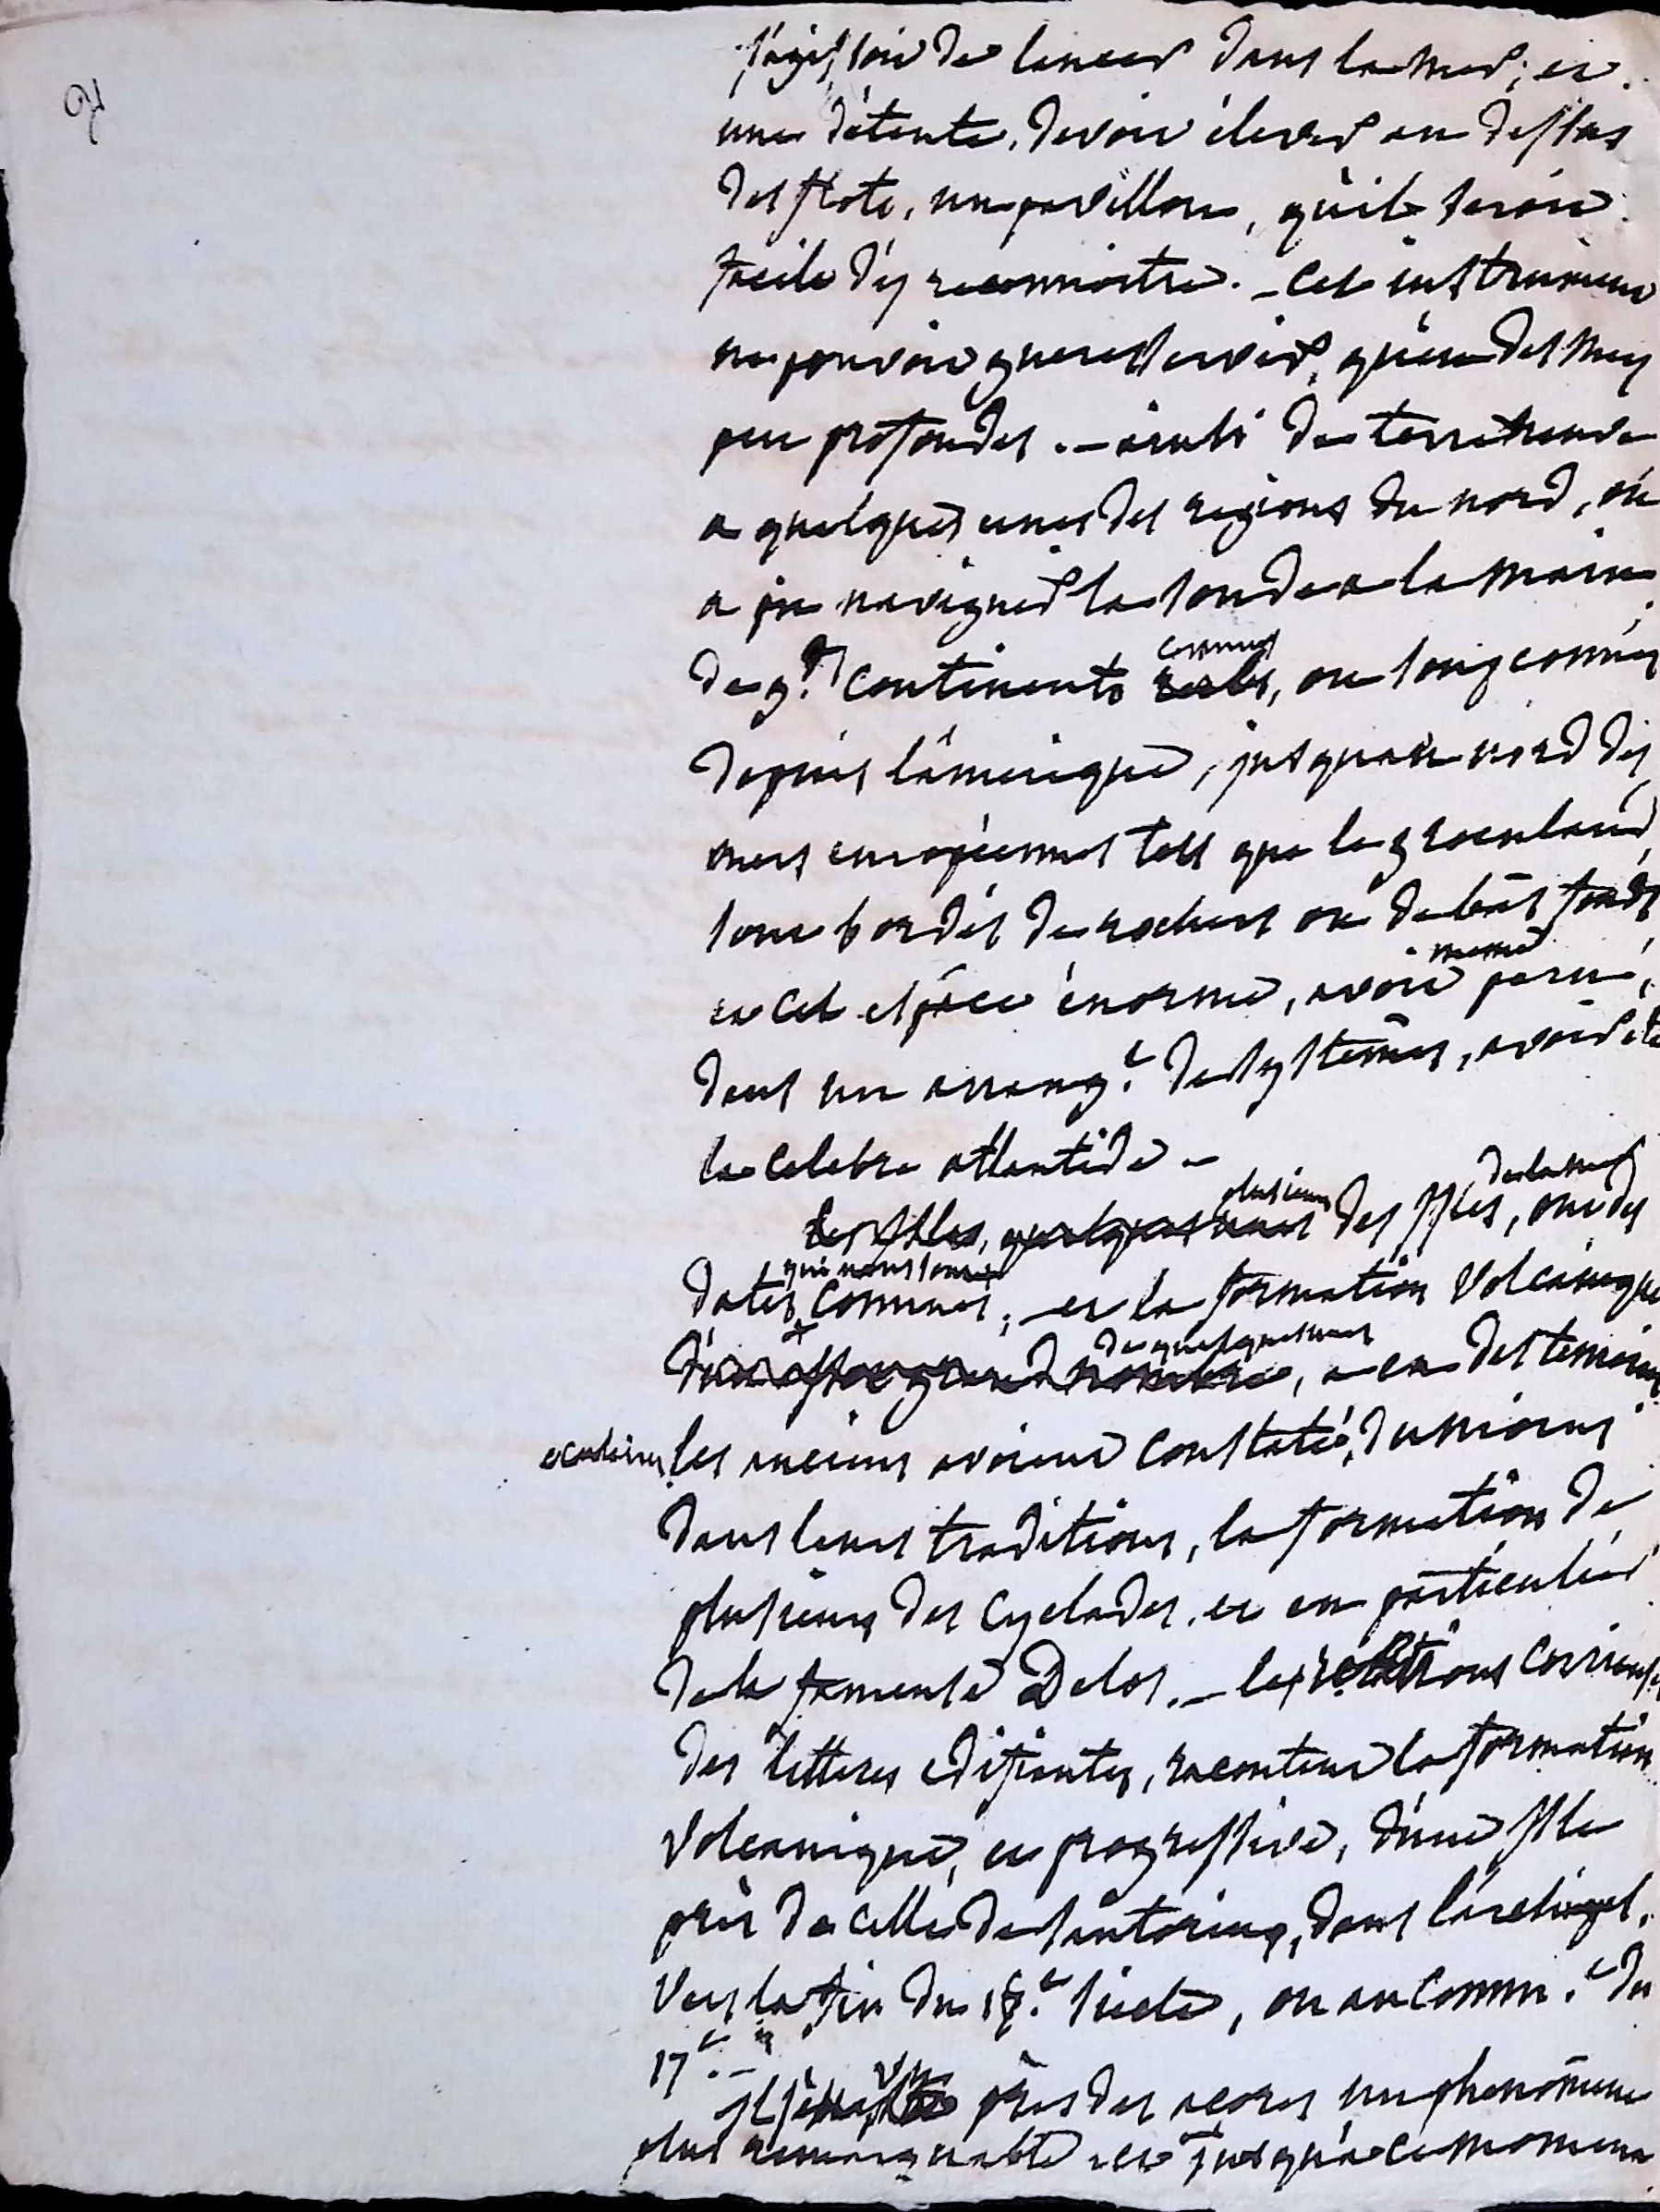 s'agissoit de lancer dans la mer; et
une détente, devoit élever au dessus
des flots, un pavillon, qu'il seroit
facile d'y reconnoitre. - Cet instrument
ne pouvoit guere servir, qu'en des mers
peu profondes. - ainsi de terre neuve
a quelques unes des régions du nord, on
a pu naviguer la sonde a la main
de g.ds continents connus, ou soupçonnés
depuis l'amerique, jusqu'au nord des
mers européennes tels que le groenland,
sont bordés de rochers ou de bas fonds
et cet espace énorme, avoit même paru,
dans un arrang.t de systèmes, avoir été
la celebre atlantide -
plusieurs des isles, ont des
dates connues, - et la formation volcanique
de quelques unes, a eu des temoins
les anciens avoient constaté, du moins
dans leurs traditions, la formation de
plusieurs des Cyclades, et en particulier
de la fameuse Delos. - les relations curieuses
des lettres edifiantes, racontent la formation
volcanique, et progressive, d'une isle
près de celle de santorin, dans l'archipel,
vers la fin du siecle, ou au comm.t du
17.e -
près des acores un phenomène
plus remarquable et jusqu'a ce moment